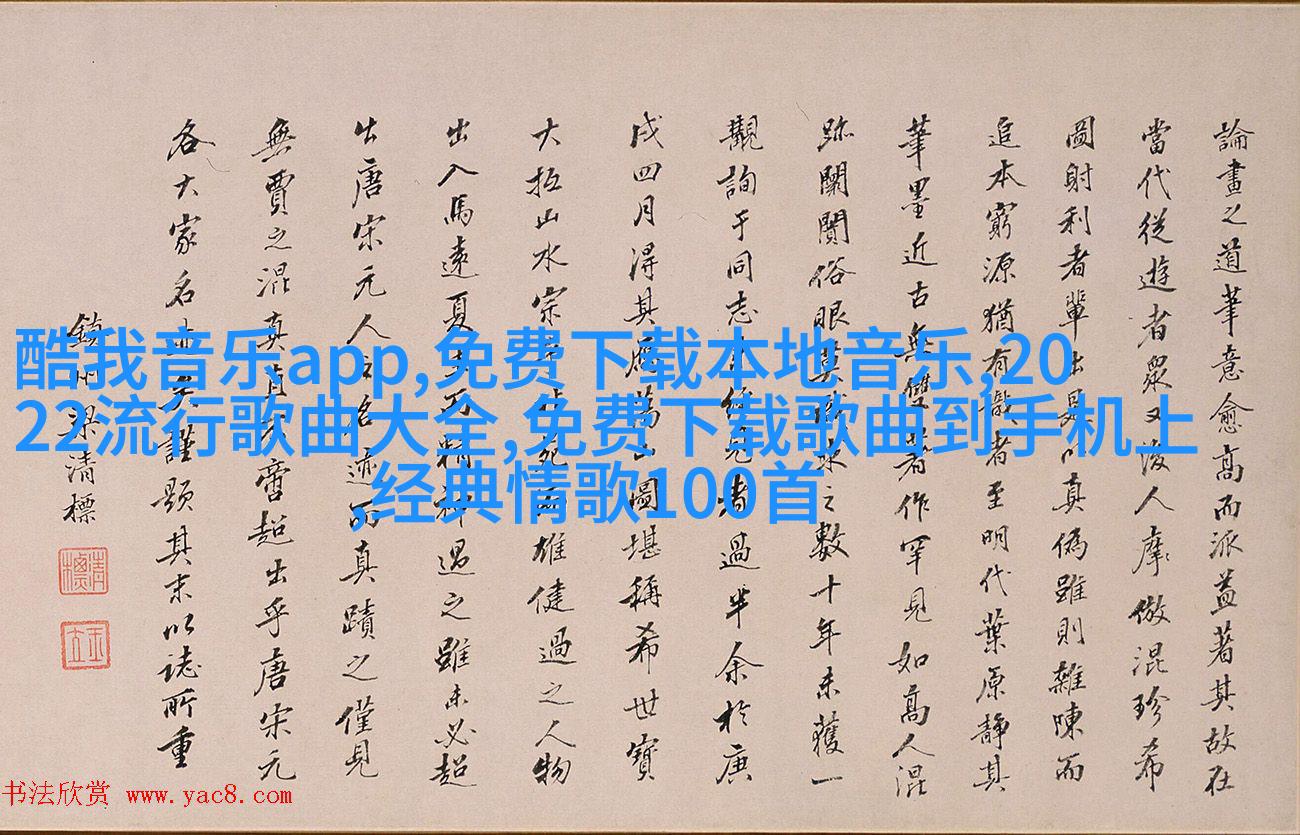 論畫之道筆意愈高而派益著其故在
當代從遊者衆又後人摹倣混珍希
圖射利者輩出是以真偽雖則雜陳而
追本窮源猶有識者至明代葉原靜其
筆墨近古無雙著作罕見如高人混
跡闤闠俗眼莫識求之數十年未獲一
觀詢于同志
過半余於庚
戌四月得其
圖堪稱希世寶
大抵山水宗
雄健過之人物
出入馬遠夏
精神過之雖未必超
出唐宋元人
迹而真蹟之僅見
無賈之混真
啻超出乎唐宋元
各大家名
矣謹題其末以誌所重
梁清標
清標
玉立
酷我音乐app,免费下载本地音乐,20
22流行歌曲大全,免费下载歌曲到手机上
,经典情歌100首
书法欣赏 www.yac8.com